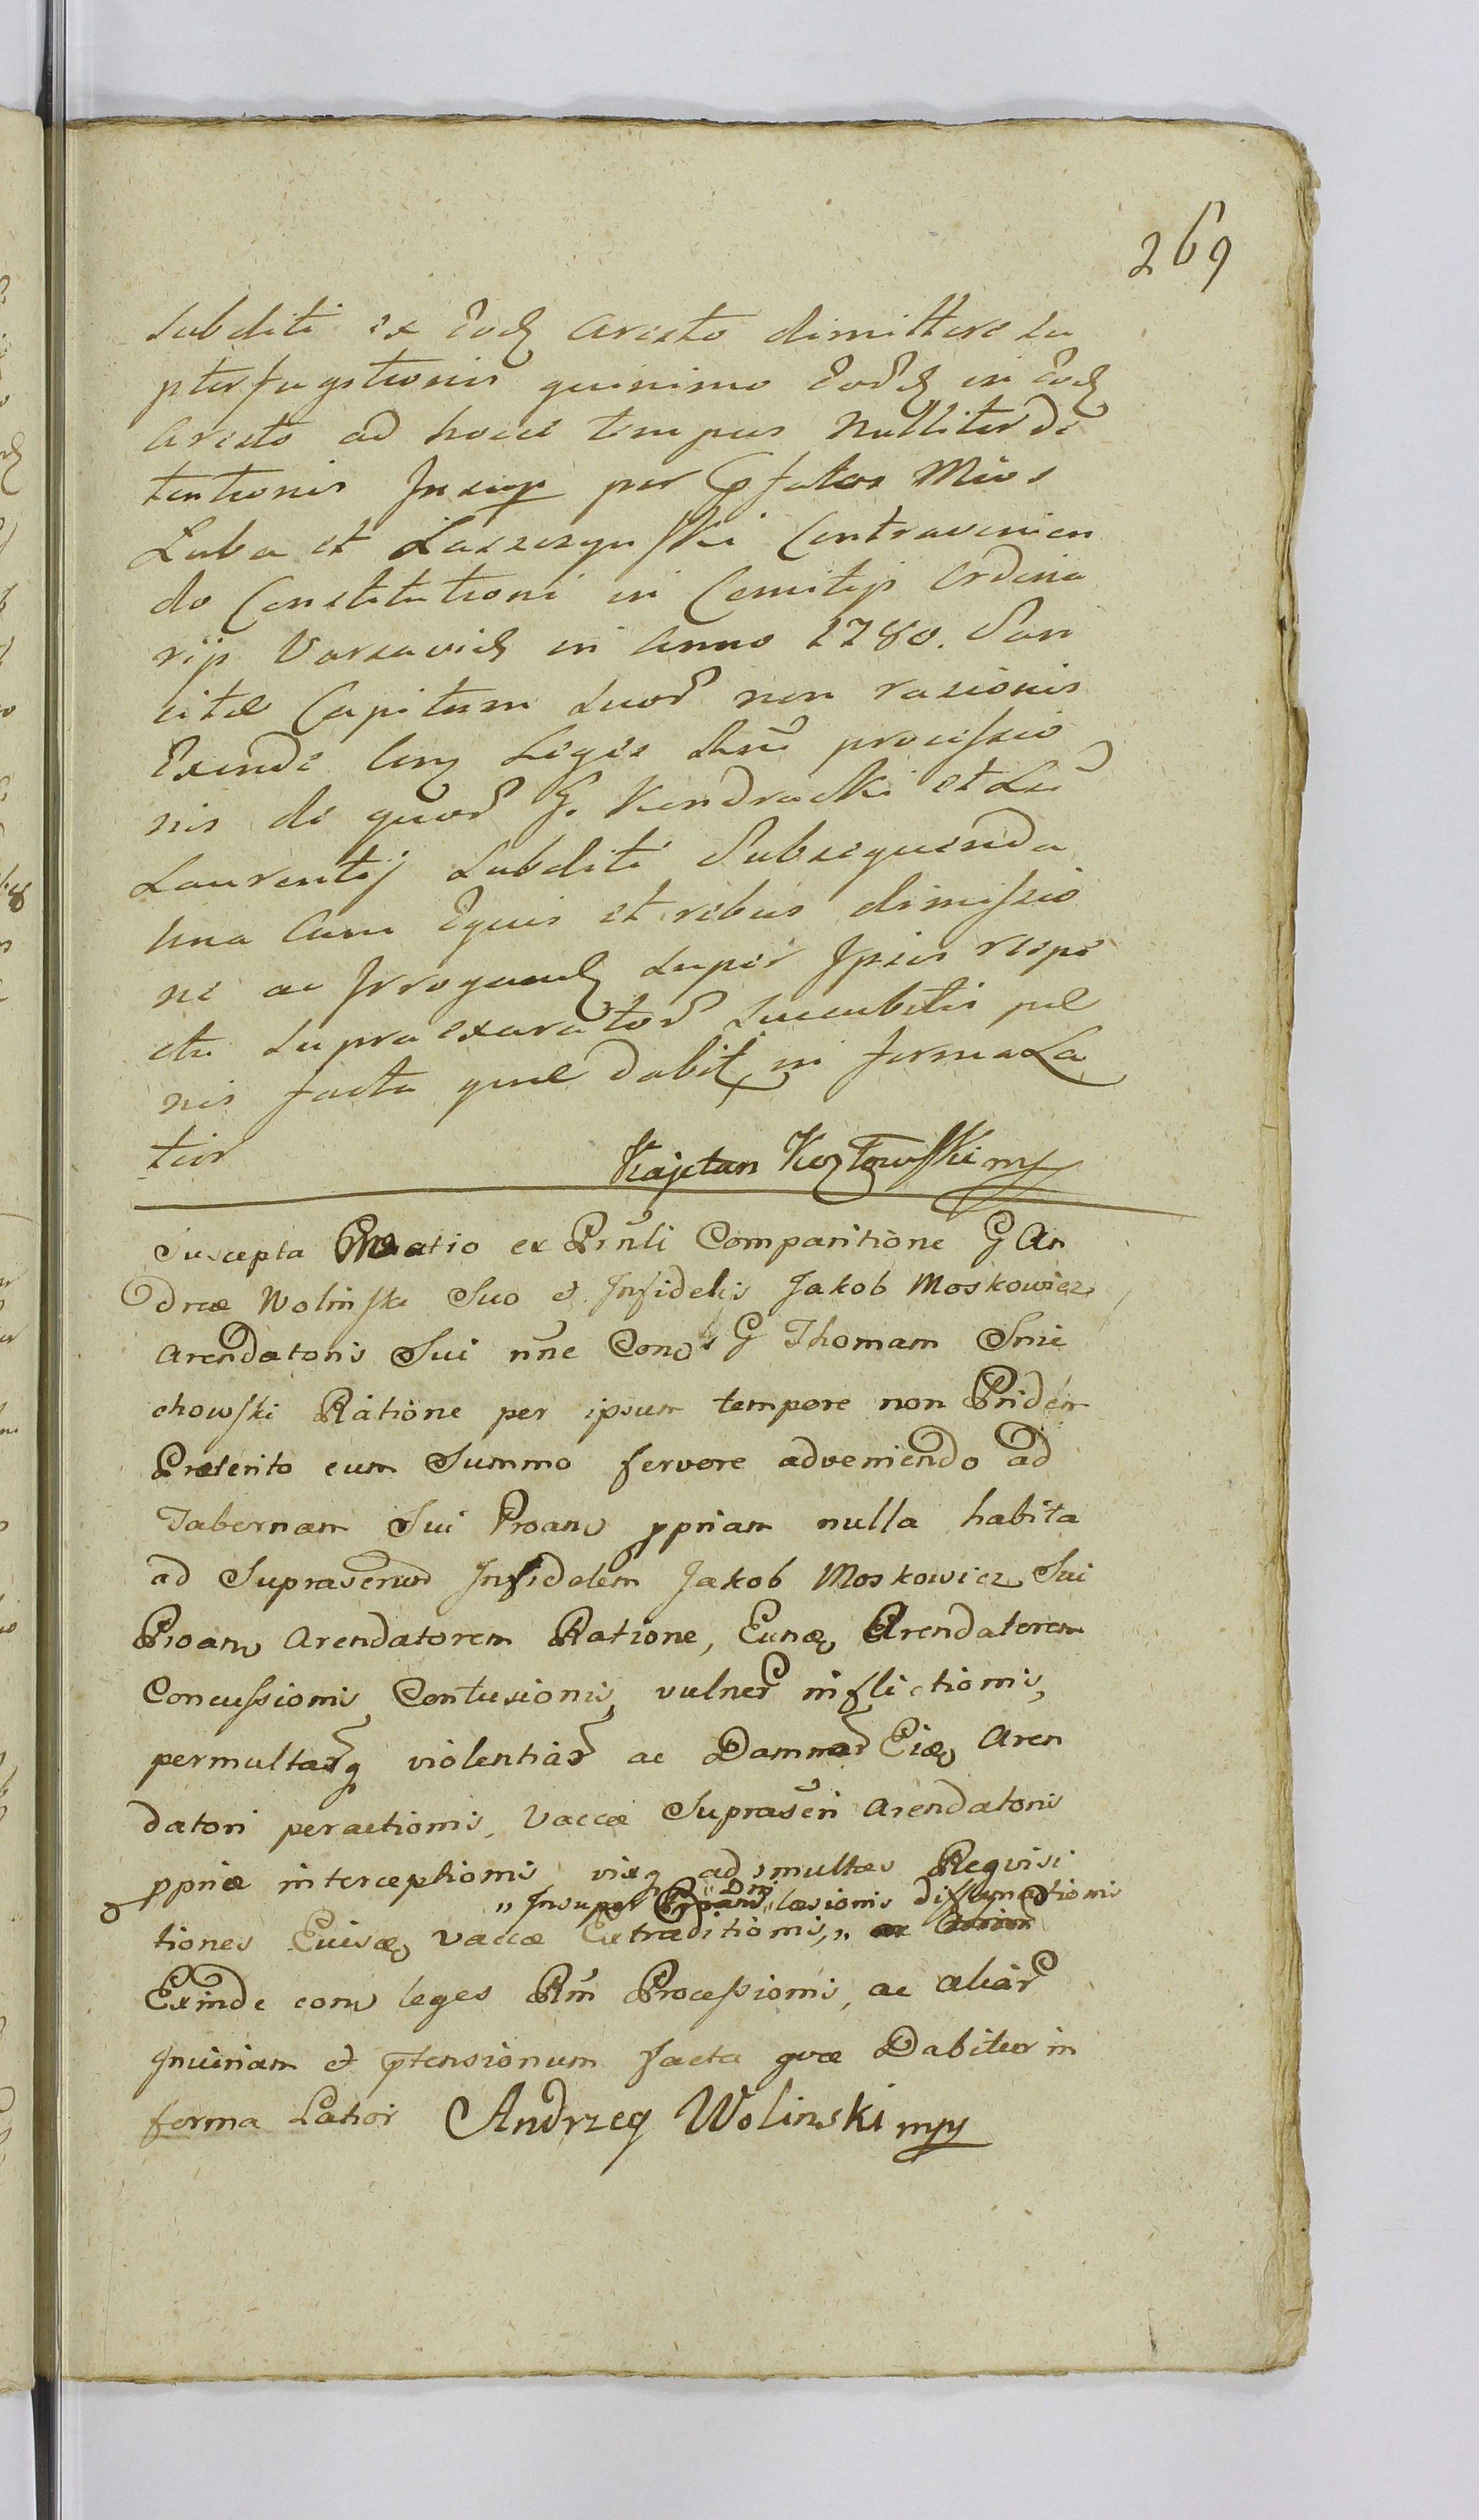 269
subditi ex Eod Aresto dimittere su
pterfugitionis quinimo Eord in Eod
Aresto ad hocce tempus Nulliter de
tentionis Insuqp per pfatos Mios
Luba et Laszczynski Contravenien
do Constitutioni in Comitijs Ordina
rijs Varsavien in Anno 1780. San
citae Capitum suor non rasionis
Exinde leges processio
nis de quor G. Kendracki et Lu
Laurentij subditi Subsequenda
una cum Equis et rebus dimissio
ne ac Irrogand super Ipsis respe
ctu supra exarator succubitis pae
nis facta quae dabit in forma La
tior
Kajetan Kozłowski mp
Suscepta Ptatio ex Prnli Comparitione G An
dreae Wolinski Suo et Infidelis Jakob Moskowicz
Arendatoris Sui nne Con G Thomam Smie
chowski Ratione per ipsum tempore non Pridem
Praeterito cum Summo fervore adveniendo ad
Tabernam Sui Proan ppriam nulla habita
ad Suprascriptum Infidelem Jakob Moskowicz Sui
Proan Arendatorem Ratione, Eund Arendatorem
Concussionis Contusionis, vulner inflictionis,
permultarq violentiar ac Damnor Eid Aren
datori peractionis, Vaccae Suprascri Arendatoris
ppriae interceptionis vixq ad multas Requisi
„Insuper Dni laesionis diffamationis
tiones Euisd vaccae Extraditionis,„
Exinde con leges Rni Processionis, ac aliar
Iniuriam et ptensionum facta quae Dabitur in
forma Latior Andrzey Wolinski mpp